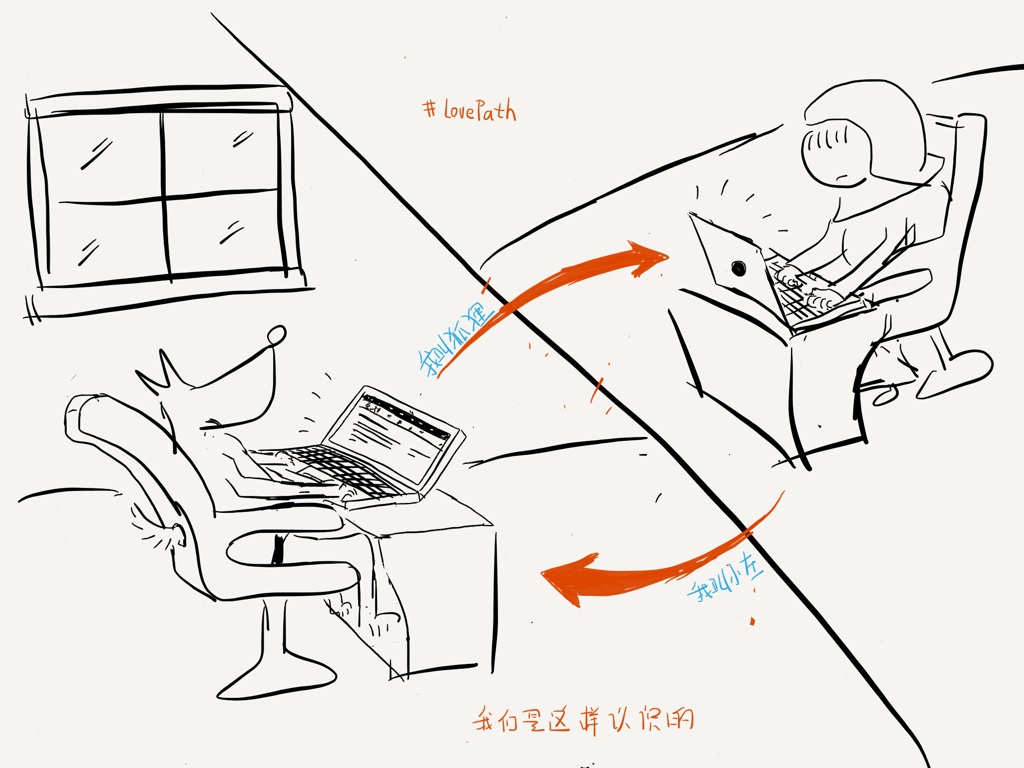 #LovePath
我叫狐狸
我叫小左
我们是这样认识的